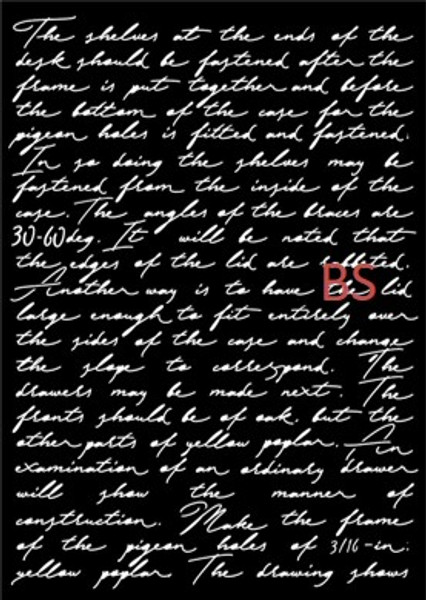 The shelves at the ends of the
desk should be fastened after the
frame is put together and before
the bottom of the case for the
pigeon holes is fitted and fastened.
In so doing the shelves may be
fastened from the inside of the
case. The angles of the braces are
30-60deg. It will be noted that
the edges of the lid are
BS
Another way is to have lid
large enough to fit entirely over
the sides of the case and change
the slope to correspond. The
drawers may be made next. The
fronts should be of oak, but the
other parts of yellow poplar. An
examination of an ordinary drawer
will show the manner of
construction. Make the frame
of the pigeon holes of 3/16-in.
yellow poplar The drawing shows